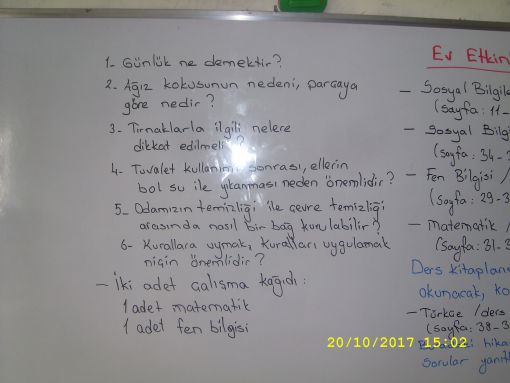 1- Günlük ne demektir?
2- Ağız kokusunun nedeni, parçaya
göre nedir?
3- Tırnaklarla ilgili nelere
dikkat edilmeli ?
4- Tuvalet kullanımı sonrası, ellerin
bol su ile yıkanması neden önemlidir?
5- Odamızın temizliği ile çevre temizliği
arasında nasıl bir bağ kurulabilir?
6- Kurallara uymak, kuralları uygulamak
niçin önemlidir?
- İki adet çalışma kağıdı:
1 adet matematik
1 adet fen bilgisi
Ev Etkin
- Sosyal Bilgile
(sayfa: 11-
- Sosyal Bilgi
(sayfa: 34-3
- Fen Bilgisi /
(Sayfa: 29-3
- Matematik /
(Sayfa: 31-3
Ders kitapların
okunacak, ko
- Türkçe / ders
(sayfa: 38-3
hika
sorular yanıtl
20/10/2017 15:02